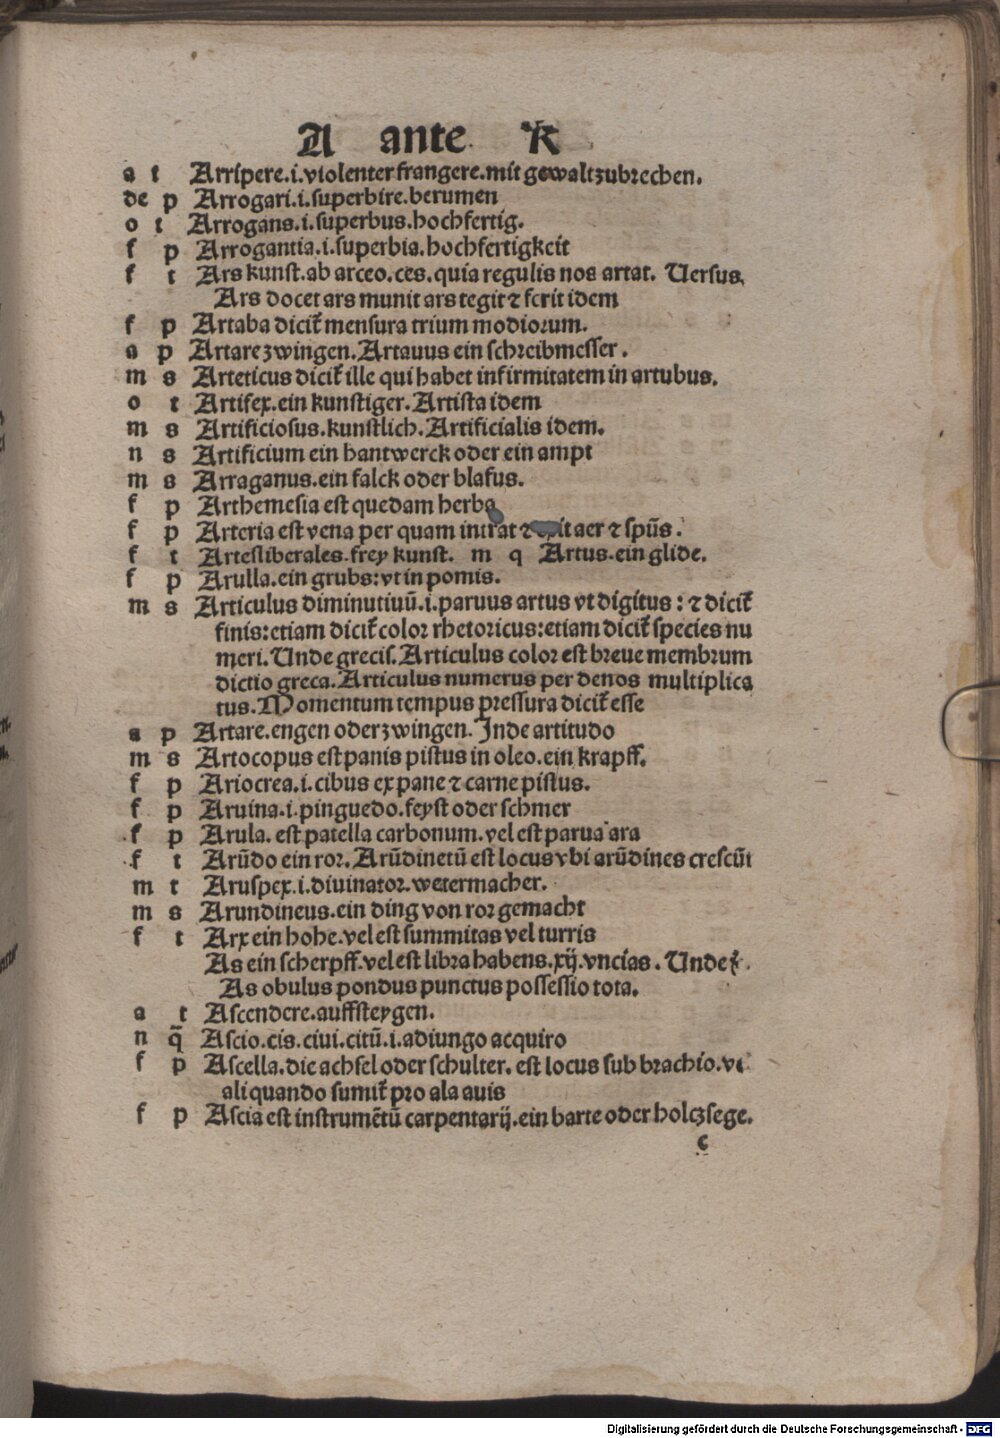 A ante R
a t Arripere.i.violenter frangere.mit gewalt zubrechen.
de p Arrogari.i.superbire.berumen
o t Arrogans.i.superbus.hochfertig.
f p Arrogantia.i.superbia.hochfertigkeit
f t Ars kunst.ab arceo.ces.quia regulis nos artat. Uersus.
Ars docet ars munit ars tegit ⁊ ferit idem
f p Artaba dicit̃ mensura trium modiorum.
a p Artare zwingen.Artauus ein schreibmesser.
m s Arteticus dicit̃ ille qui habet infirmitatem in artubus.
o t Artifex.ein kunstiger.Artista idem
m s Artificiosus.kunstlich.Artificialis idem.
n s Artificium ein hantwerck oder ein ampt
m s Arraganus.ein falck oder blafus.
f p Arthemesia est quedam herba
f p Arteria est vena per quam intrat ⁊ exit aer ⁊ spũs.
f t Artesliberales.frey kunst. m q Artus.ein glide.
f p Arulla.ein grubs:vt in pomis.
m s Articulus diminutiuũ.i.paruus artus vt digitus: ⁊ dicit̃
finis:etiam dicit̃ color rhetoricus:etiam dicit̃ species nu
meri.Unde grecis.Articulus color est breue membrum
dictio greca.Articulus numerus per denos multiplica
tus.Momentum tempus pressura dicit̃ esse
a p Artare.engen oder zwingen. Inde artitudo
m s Artocopus est panis pistus in oleo.ein krapff.
f p Ariocrea.i.cibus ex pane ⁊ carne pistus.
f p Aruina.i.pinguedo.feyst oder schmer
f p Arula. est patella carbonum.vel est parua ara
f t Arũdo ein ror.Arũdinetũ est locus vbi arũdines crescũt
m t Aruspex.i.diuinator.wetermacher.
m s Arundineus.ein ding von ror gemacht
f t Arx ein hohe.vel est summitas vel turris
As ein scherpff.vel est libra habens.xij.vncias. Unde
As obulus pondus punctus possessio tota.
a t Ascendere.auffsteygen.
n q̃ Ascio.cis.ciui.citũ.i.adiungo acquiro
f p Ascella.die achsel oder schulter. est locus sub brachio.vt
aliquando sumit̃ pro ala auis
f p Ascia est instrumẽtũ carpentarij.ein barte oder holczsege.
c
Digitalisierung gefördert durch die Deutsche Forschungsgemeinschaft - DFG